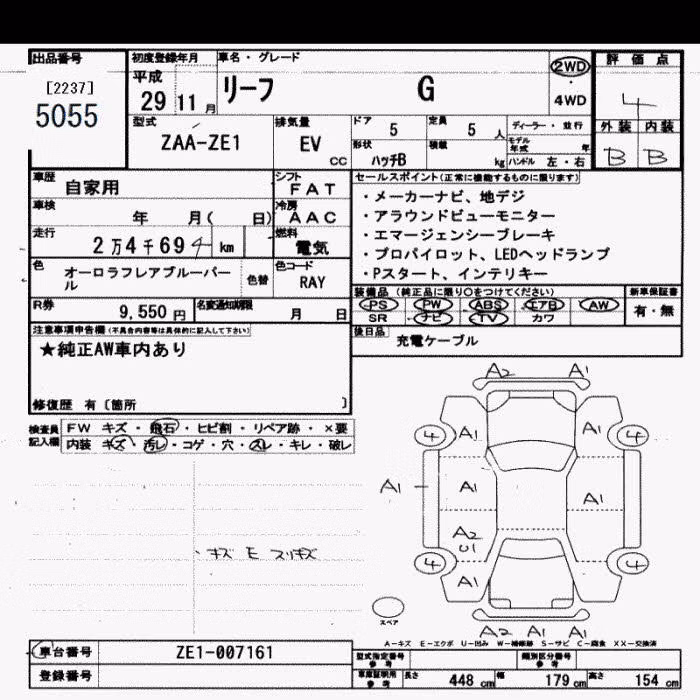 出品番号
[2237]
5055
初度登録年月
平成
29 11 月
車名・グレード
リーフ G
2WD
・
4WD
評価点
4
外装 内装
B B
型式
ZAA-ZE1
排気量
EV
cc
ドア 5
定員 5 人
形状 ハッチB
積載 kg
ディーラー・並行
モデル年式 年
ハンドル 左・右
車歴 自家用
シフト FAT
車検 年 月( 日)
冷房 AAC
走行 2万4千694 km
燃料 電気
色 オーロラフレアブルーパール
色替
色コード RAY
R券 9,550 円
名変通知期限 月 日
セールスポイント(正常に機能するものに限ります)
・メーカーナビ、地デジ
・アラウンドビューモニター
・エマージェンシーブレーキ
・プロパイロット、LEDヘッドランプ
・Pスタート、インテリキー
装備品(純正品に限り○をつけてください)
新車保証書
PS PW ABS エアB AW
SR ナビ TV カワ
有・無
後日品 充電ケーブル
注意事項申告欄(不具合内容等は具体的に記入して下さい)
★純正AW車内あり
修復歴 有〔箇所 〕
検査員記入欄
FW キズ・飛石・ヒビ割・リペア跡・×要
内装 キズ・汚レ・コゲ・穴・スレ・キレ・破レ
・キズ E スリキズ
A2 A1
4 A1 A1 4
A1 A1 A1
A2
U1
4 A1 4
A2 A1 A1
スペア
A-キズ E-エクボ U-凹み W-補修跡 S-サビ C-腐食 XX-交換済
車台番号 ZE1-007161
登録番号
型式指定番号
参考
類別区分番号
参考
車庫証明用
参考
長さ 448 cm 幅 179 cm 高さ 154 cm